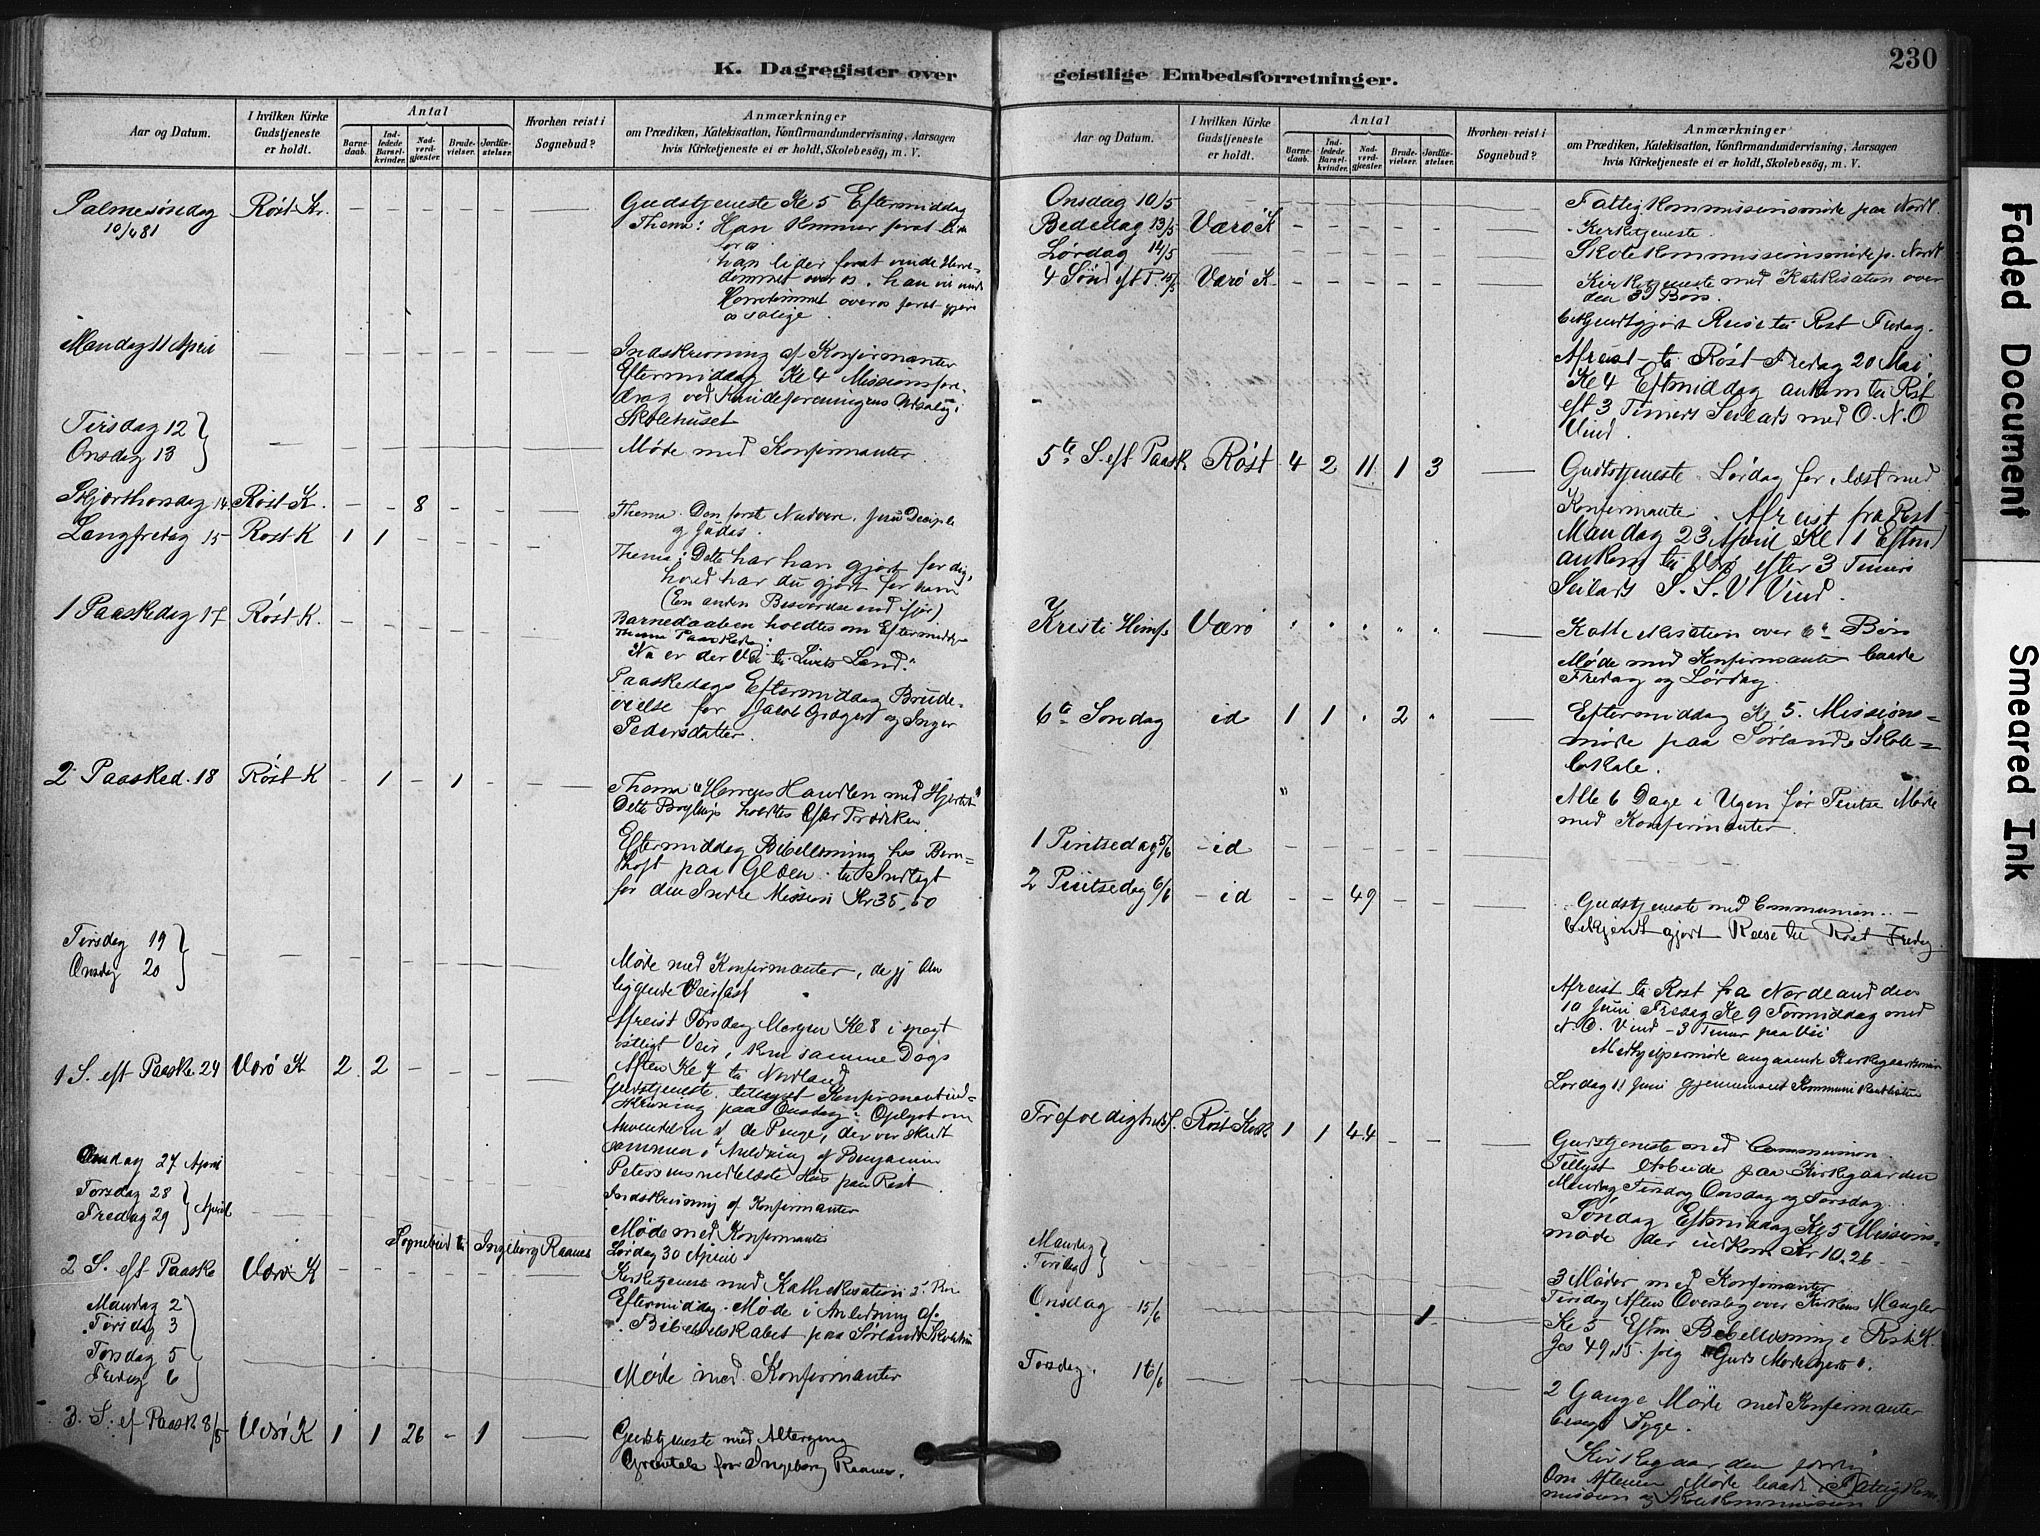 K. Dagregister over geistlige Embedsforretninger.
230
Aar og Datum.
I hvilken Kirke
Gudstjeneste
er holdt.
Antal
Barne-
daab.
Ind-
ledede
Barsel-
kvinder.
Nad-
verd-
gjæster.
Brude-
vielser.
Jordfæ-
stelser.
Hvorhen reist i
Sognebud?
Anmærkninger
om Prædiken, Katekisation, Konfirmandundervisning, Aarsagen
hvis Kirketjeneste ei er holdt, Skolebesøg, m. V.
Palmesöndag Röst K. Gudstjeneste Kl 5 Eftermiddag
10/4 81 Thema: Han kommer forat
for os
han lider forat vinde Herre-
dømmet over os, han vil
Herredømmet over os forat gjøre
os salige.
Mandag 11 April Indskrivning af Konfirmanter
Eftermiddag Kl 4 Missionsfore
drag ved Kvindeforeningens Udsalg i
Skolehuset
Tirsdag 12
Onsdag 13 Møde med Konfirmanter
Skjærthorsdag 14 Röst K. 8 Thema. Den første Nadvere, Jesu Disciple
og Judas.
Langfredag 15 Rost K 1 1 Thema: Dette har han gjort for dig,
hvad har du gjort for ham
(En anden Besvarelse end ifjor)
1 Paaskedag 17 Röst K. Barnedaaben holdtes om Eftermiddg
Thema Paaskedag:
"Nu er der Vei til Livets Land."
Paaskedags Eftermiddag Brude-
vielse for Jacob og Inger
Pedersdatter.
2 Paasked. 18 Röst K 1 1 Thema "Herrens Handlen med Hjertet"
Dette Bryllup holdtes efter Prædiken
Eftermiddag Bibellæsning hos Bern-
hoft paa Glæen til Indtægt
for den Indre Mission Kr 35,50
Tirsdag 19
Onsdag 20 Møde med Konfirmanter, de
liggende Veirfast
Afreist Torsdag Morgen Kl 8 i
østligt Veir, kom samme Dags
Aften Kl 9 til Nordland
1 S. eft Paaske 24 Værö K 2 2 Gudstjeneste tillyst Konfirmantind-
skrivning paa Onsdag. Oplyst om
Anvendelsen af de Penge, der var skudt
sammen i Anledning af Benjamin
Petersens nedblæste Hus paa Røst
Onsdag 27 April Indskrivning af Konfirmanter
Torsdag 28
Fredag 29 April Møde med Konfirmanter
Sognebud til Ingeborg Raanes Lørdag 30 April
2 S. eft Paaske Værö K Kirketjeneste med Kathekisation
Eftermiddag. Møde i Anledning af
Bibelselskabet paa Sørland
Mandag 2
Tirsdag 3
Torsdag 5
Fredag 6 Møde med Konfirmanter
3. S. ef Paask 8/5 Værö K 1 1 26 1 Gudstjeneste med Altergang
Gravtale for Ingeborg Raanes.
Aar og Datum.
I hvilken Kirke
Gudstjeneste
er holdt.
Antal
Barne-
daab.
Ind-
ledede
Barsel-
kvinder.
Nad-
verd-
gjæster.
Brude-
vielser.
Jordfæ-
stelser.
Hvorhen reist i
Sognebud?
Anmærkninger
om Prædiken, Katekisation, Konfirmandundervisning, Aarsagen
hvis Kirketjeneste ei er holdt, Skolebesøg, m. V.
Onsdag 10/5 Fattigkommissionsmøde paa Nordl.
Bededag 13/5 Værö K Kirketjeneste.
Lørdag 14/5 Skolekommissionsmøde p. Nordl
4 Sönd eft P. 15/5 Værö K Kirketjeneste med Katekisation over
den 3die Bøn.
bekjendtgjort Reise til Røst Fredag.
Afreist til Röst Fredag 20 Mai
Kl 4 Eftmiddag ankom til Röst
eft 3 Timers Seilads med O.N.O
Vind.
5te S. eft Paask Röst 4 2 11 1 3 Gudstjeneste. Lørdag før læst med
Konfirmanter. Afreist fra Röst
Mandag 23 April Kl 1 Eftmd
ankom til Vær efter 3 Timers
Seilads S.S.V Vind.
Kristi Himf. Værö Kathekisation over 6te Bøn
Møde med Konfirmanter baade
Fredag og Lørdag.
6te Söndag id 1 1 2 Eftermiddag Kl 5. Missions-
møde paa Sørlands Skole-
lokale.
Alle 6 Dage i Ugen før Pintse Møde
med Konfirmanter.
1 Pintsedag 5/6 id
2 Pintsedag 6/6 id 49 Gudstjeneste med Communion.
bekjendtgjort Reise til Röst Fredag
Afreist til Röst fra Nordland den
10 Juni Fredag Kl 9 Formiddag med
N.O. Vind - 3 Timer paa Vei
Medhjelpermøde angaaende
Lørdag 11 Juni gjennemseet
Trefoldigheds S. Röst Kirk 1 1 44 Gudstjeneste med Communion
Tillyst Arbeide paa Kirkegaarden
Mandag Tirsdag Onsdag og Torsdag.
Söndag Eftmiddag Kl 5 Missions-
møde der indkom Kr 10,26
Mandag
Tirsdag 3 Møder med Konfirmanter
Tirsdag Aften Overslag over Kirkens Mangler
Onsdag 15/6 1 Kl 5 Eftm Bibellæsning i Röst K.
Jes 49,15 følg "Guds Moderhjerte".
Torsdag. 16/6 2 Gange Møde med Konfirmanter
besøgt Syge.
Kirkegaarden
Om Aftenen Møde baade i Fattigkom-
mission og Skolekommission
Faded Document
Smeared Ink